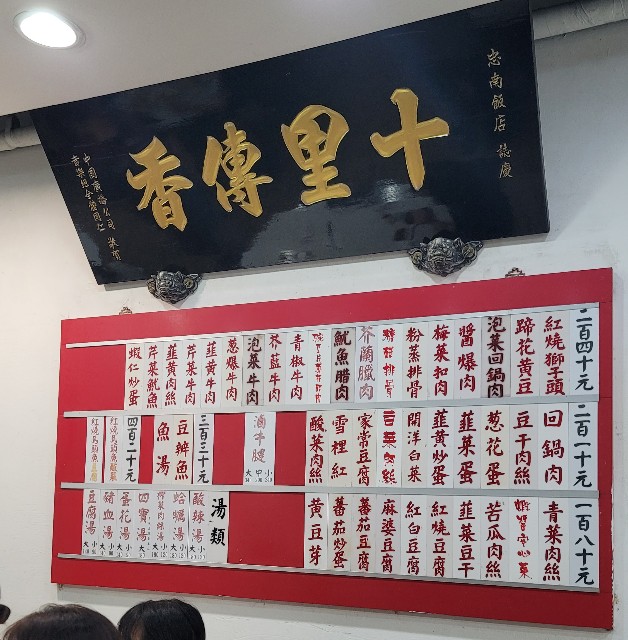 忠南飯店 誌慶
十里傳香
中國廣播公司
音樂組全體同仁 敬賀
二百四十元
紅燒獅子頭
蹄花黃豆
泡菜回鍋肉
醬爆肉
梅菜扣肉
粉蒸排骨
芥蘭臘肉
魷魚腊肉
青椒牛肉
芥藍牛肉
泡菜牛肉
葱爆牛肉
韮黃牛肉
芹菜牛肉
韮黃肉絲
芹菜魷魚
蝦仁炒蛋
二百一十元
回鍋肉
豆干肉絲
葱花蛋
韮菜蛋
韮黃炒蛋
開洋白菜
家常豆腐
雪裡紅
酸菜肉絲
滷牛腱
大 中 小
三百三十元
豆瓣魚
魚湯
四百二十元
一百八十元
青菜肉絲
蝦醬空心菜
苦瓜肉絲
韮菜豆干
紅燒豆腐
紅白豆腐
麻婆豆腐
蕃茄豆腐
蕃茄炒蛋
黃豆芽
湯類
酸辣湯 大 小
蛤蠣湯 大 小
榨菜肉絲湯 大 小
四寶湯 大
蛋花湯 大 小
豬血湯 大 小
豆腐湯 大 小